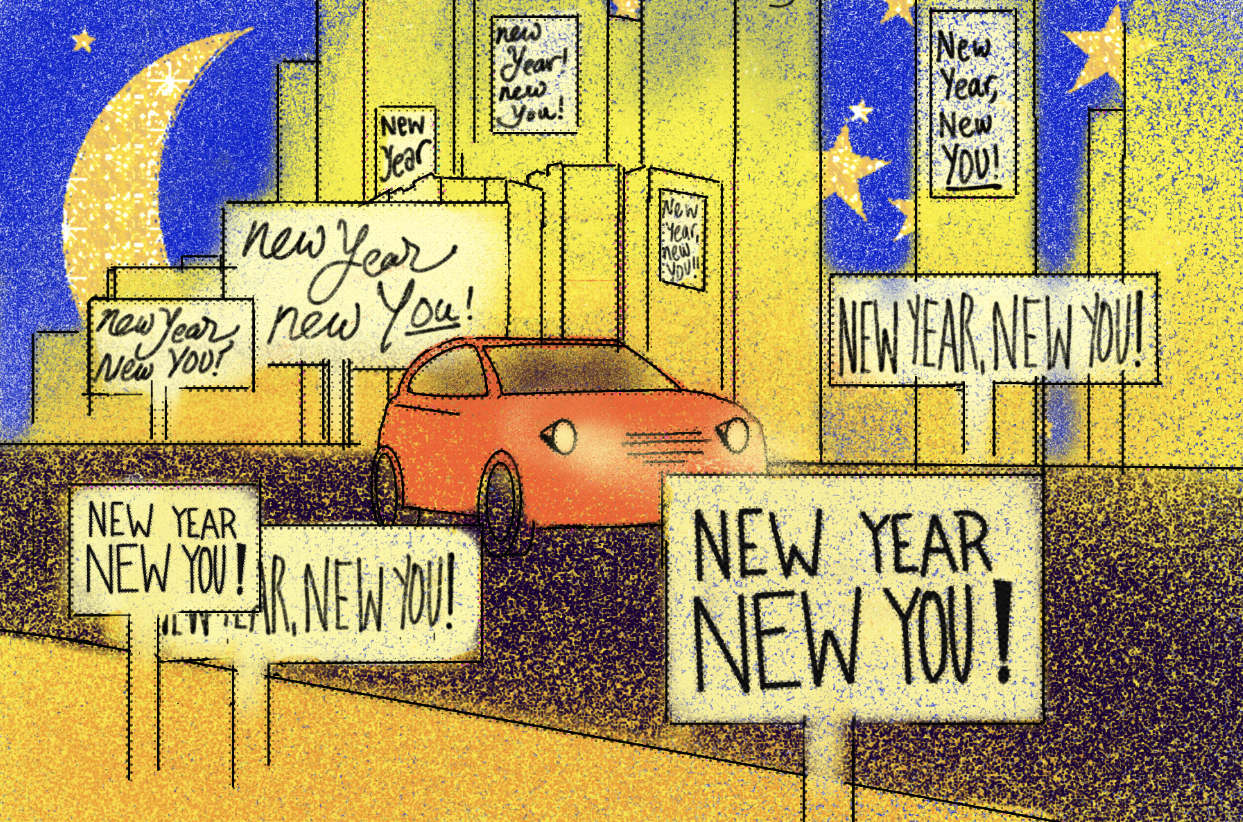 new
Year!
new
You!
New
Year,
New
YOU!
New
Year
New
Year,
new
YOU!!
new Year
new You!
new Year
New YOU!
NEW YEAR, NEW YOU!
NEW YEAR
NEW YOU!
NEW YEAR, NEW YOU!
NEW YEAR
NEW YOU!